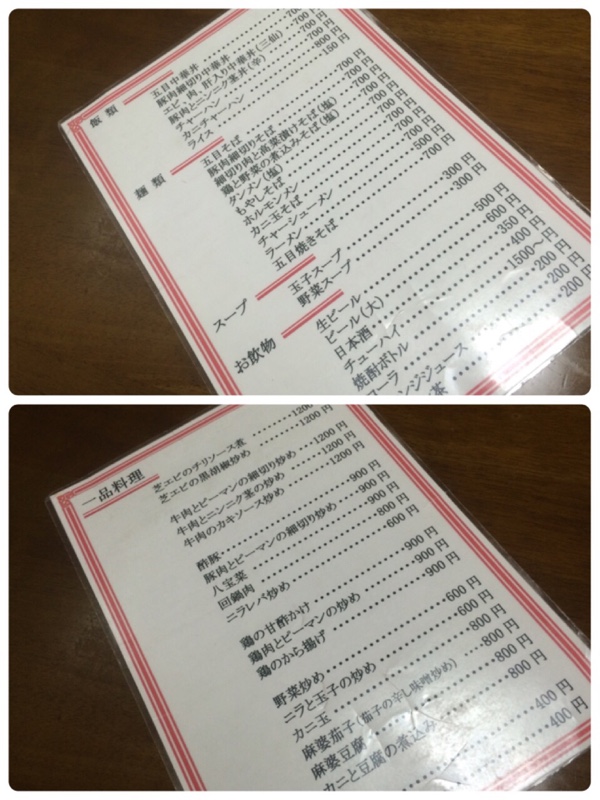 飯類
五目中華丼 700
豚肉細切り中華丼 700円
エビ、肉、肝入り中華丼(三仙) 700円
豚肉とニンニク茎丼(辛) 700円
チャーハン 700円
カニチャーハン 800円
ライス 150円
麺類
五目そば 700円
豚肉細切りそば 700円
細切り肉と高菜漬けそば(塩) 700円
鶏と野菜の煮込みそば(塩) 700円
タンメン(塩) 700円
もやしそば 700円
ホルモンメン 700円
カニ玉そば 700円
チャーシューメン 700円
ラーメン 500円
五目焼きそば 700円
スープ
玉子スープ 300円
野菜スープ 300円
お飲物
生ビール 500円
ビール(大) 600円
日本酒 350円
チューハイ 400円
焼酎ボトル 1500〜円
コーラ 200円
ンジジュース 200円
茶 200
一品料理
芝エビのチリソース煮 1200
芝エビの黒胡椒炒め 1200円
牛肉とピーマンの細切り炒め 1200円
牛肉とニンニク茎の炒め 1200円
牛肉のカキソース炒め 1200円
酢豚 900円
豚肉とピーマンの細切り炒め 900円
八宝菜 900円
回鍋肉 900円
ニラレバ炒め 600円
鶏の甘酢かけ 900円
鶏肉とピーマンの炒め 900円
鶏のから揚げ
野菜炒め 600円
ニラと玉子の炒め 600円
カニ玉 800円
麻婆茄子(茄子の辛し味噌炒め) 800円
麻婆豆腐 800円
カニと豆腐の煮込み 800円
400円
400円